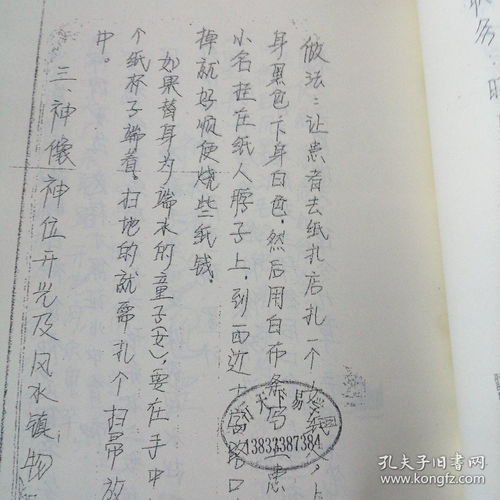 做法：让患者去纸扎店扎一个
身黑色下身白色，然后用白布条写 患
小名挂在纸人脖子上，到西近十 路口
掉就好顺便烧些纸钱。
如果替身为端水的童子(女)，要在手中
个纸杯子端着。扫地的就需扎个扫帚放
中。
三、神像神位开光及风水镇物
天 易
13833387384
孔夫子旧书网